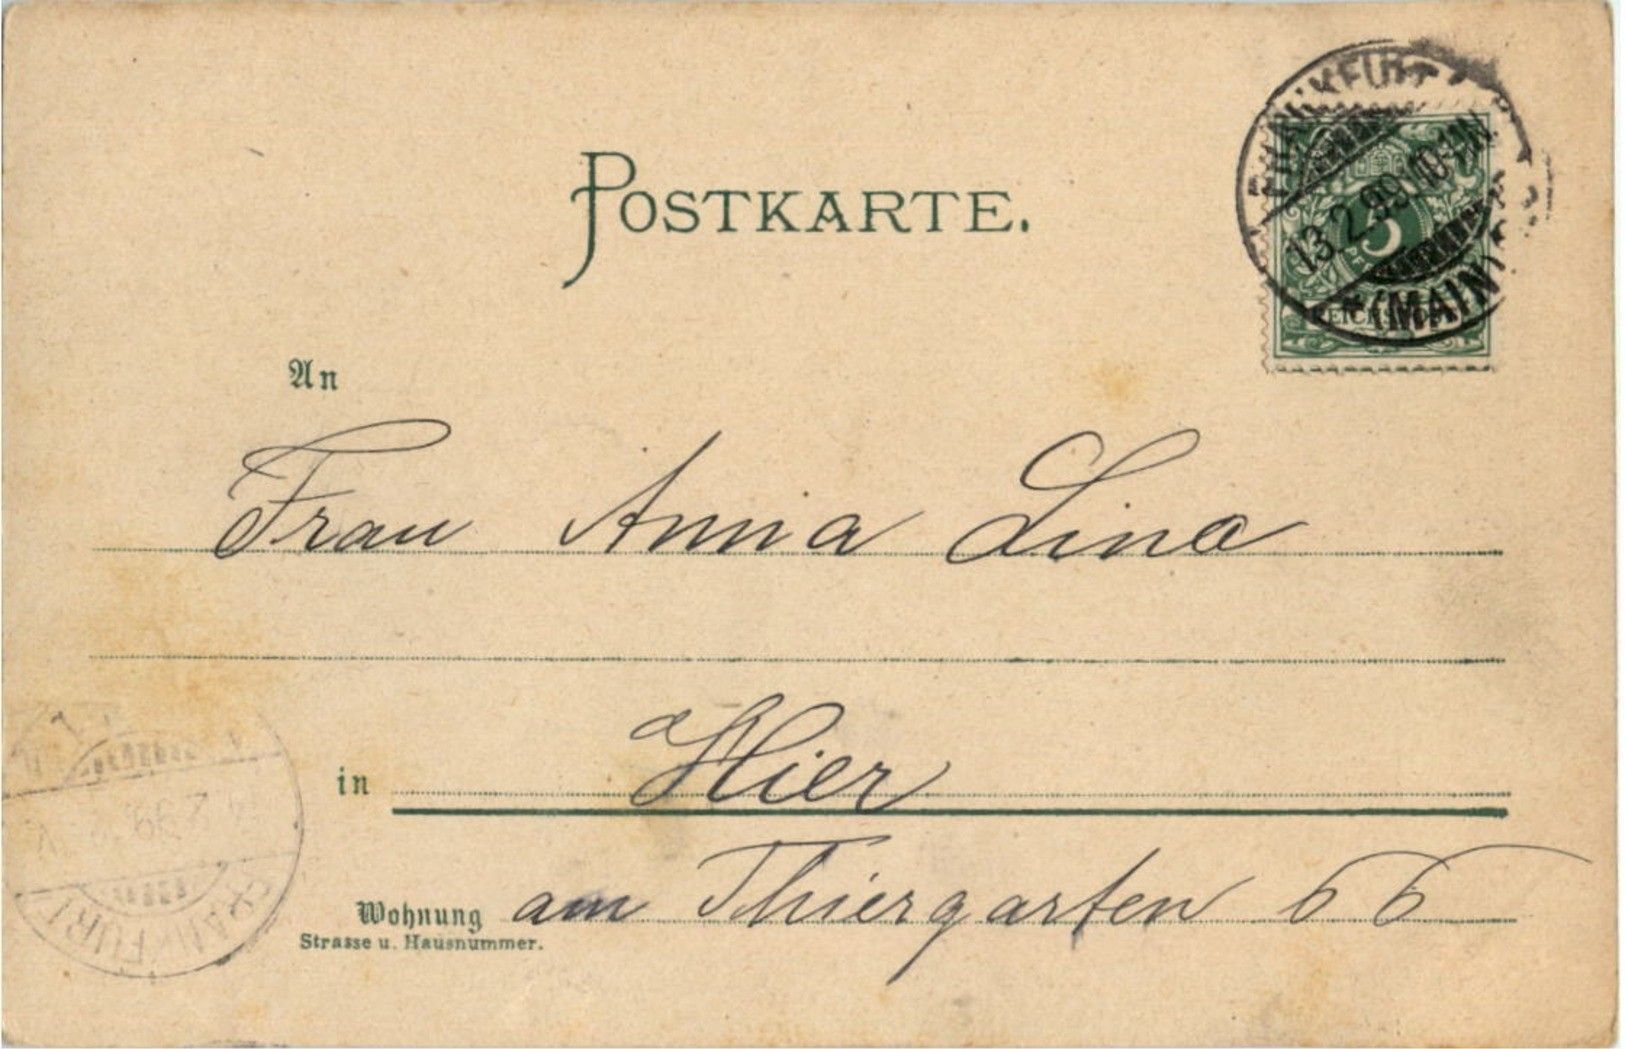 POSTKARTE.
FRANKFURT
13.2.99. 10-11N.
* (MAIN)
5
REICHSPOST
An
Frau Anna Lina
in Hier
Wohnung am Thiergarten 66
Strasse u. Hausnummer.
FRANKFURT